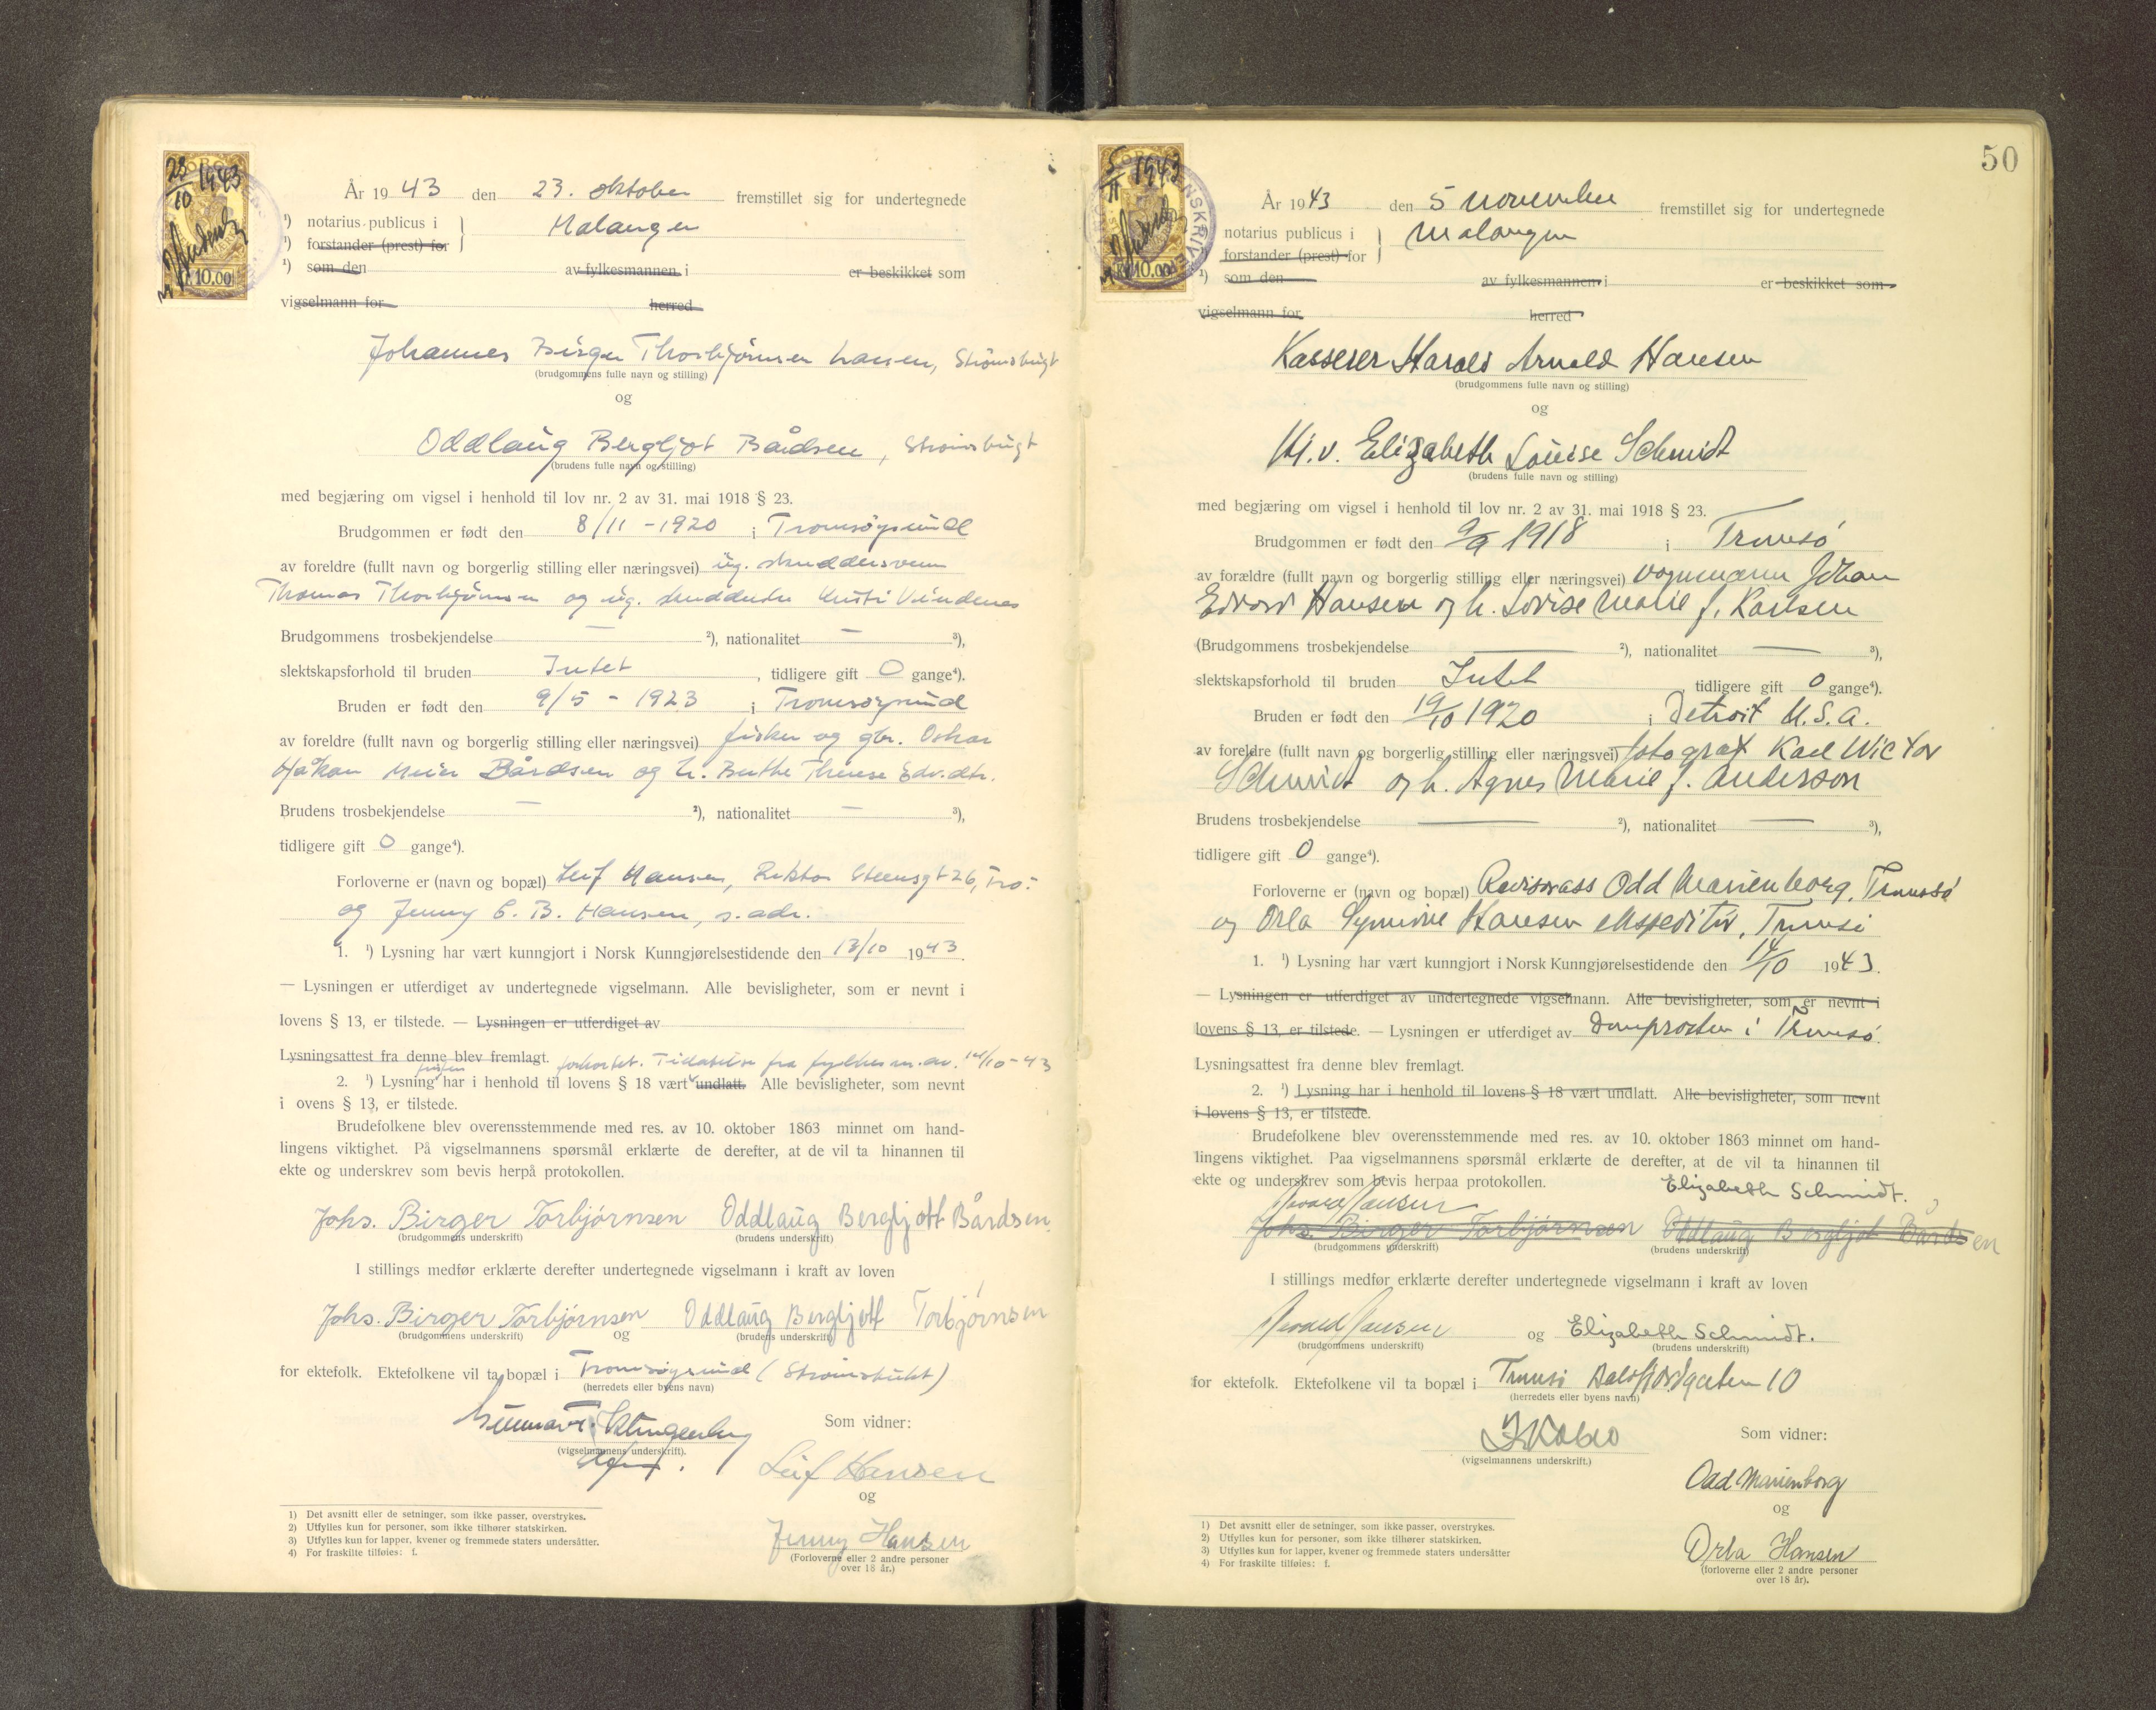 23/10 1943
10.00
År 1943 den 23. oktober fremstillet sig for undertegnede
¹) notarius publicus i Malangen
¹) forstander (prest) for
¹) som den av fylkesmannen i er beskikket som
vigselmann for herred
Johannes Birger Thorbjørnsen Hansen, Strømsbugt
(brudgommens fulle navn og stilling)
og
Oddlaug Bergljot Bårdsen, Strømsbugt
(brudens fulle navn og stilling)
med begjæring om vigsel i henhold til lov nr. 2 av 31. mai 1918 § 23.
Brudgommen er født den 8/11 - 1920 i Tromsøysund
av foreldre (fullt navn og borgerlig stilling eller næringsvei) ug. skreddersvenn
Thomas Thorbjørnsen og ug.
Brudgommens trosbekjendelse — ²), nationalitet — ³),
slektskapsforhold til bruden Intet, tidligere gift 0 gange⁴).
Bruden er født den 9/5 - 1923 i Tromsøysund
av foreldre (fullt navn og borgerlig stilling eller næringsvei) fisker og gbr. Oskar
Håkon Meier Bårdsen og h. Berthe Therese Edv.dtr.
Brudens trosbekjendelse — ²), nationalitet — ³),
tidligere gift 0 gange⁴).
Forloverne er (navn og bopæl) Leif Hansen, Rektor Steensgt 26, Tro.
og Jenny C. B. Hansen, s. adr.
1. ¹) Lysning har vært kunngjort i Norsk Kunngjørelsestidende den 13/10 1943.
— Lysningen er utferdiget av undertegnede vigselmann. Alle bevisligheter, som er nevnt i
lovens § 13, er tilstede. — Lysningen er utferdiget av
Lysningsattest fra denne blev fremlagt. forkortet. Tillatelse fra fylkesm. av 14/10-43
2. ¹) Lysningfristen har i henhold til lovens § 18 vært undlatt. Alle bevisligheter, som nevnt
i ovens § 13, er tilstede.
Brudefolkene blev overensstemmende med res. av 10. oktober 1863 minnet om hand-
lingens viktighet. På vigselmannens spørsmål erklærte de derefter, at de vil ta hinannen til
ekte og underskrev som bevis herpå protokollen.
Johs. Birger Torbjørnsen Oddlaug Bergljott Bårdsen.
(brudgommens underskrift) (brudens underskrift)
I stillings medfør erklærte derefter undertegnede vigselmann i kraft av loven
Johs. Birger Torbjørnsen Oddlaug Bergljott Torbjørnsen
(brudgommens underskrift) og (brudens underskrift)
for ektefolk. Ektefolkene vil ta bopæl i Tromsøysund (Strømsbukt)
(herredets eller byens navn)
Gunnar Klingenberg
(vigselmannens underskrift).
Som vidner:
Leif Hansen
og
Jenny Hansen
(Forloverne eller 2 andre personer
over 18 år.)
1) Det avsnitt eller de setninger, som ikke passer, overstrykes.
2) Utfylles kun for personer, som ikke tilhører statskirken.
3) Utfylles kun for lapper, kvener og fremmede staters undersåtter.
4) For fraskilte tilføies: f.
50
5/11 1943
10.00
År 1943 den 5 november fremstillet sig for undertegnede
notarius publicus i Malangen
forstander (prest) for
¹) som den av fylkesmannen i er beskikket som
vigselmann for herred
Kasserer Harald Arnold Hansen
(brudgommens fulle navn og stilling)
og
Elizabeth Louise Schmidt
(brudens fulle navn og stilling)
med begjæring om vigsel i henhold til lov nr. 2 av 31. mai 1918 § 23.
Brudgommen er født den 9/9 1918 i Tromsø
av forældre (fullt navn og borgerlig stilling eller næringsvei) vognmann Johan
Edvard Hansen og h. Lovise Marie f. Karlsen
(Brudgommens trosbekjendelse — ²), nationalitet — ³),
slektskapsforhold til bruden Intet, tidligere gift 0 gange⁴).
Bruden er født den 19/10 1920 i Detroit U.S.A.
av foreldre (fullt navn og borgerlig stilling eller næringsvei) fotograf Karl Victor
Schmidt og h. Agnes Marie f. Anderson
Brudens trosbekjendelse — ²), nationalitet — ³),
tidligere gift 0 gange⁴).
Forloverne er (navn og bopæl) Revisorass Odd Marienborg, Tromsø
og Orla Hansen ekspeditør, Tromsø
1. ¹) Lysning har vært kunngjort i Norsk Kunngjørelsestidende den 14/10 1943.
— Lysningen er utferdiget av undertegnede vigselmann. Alle bevisligheter, som er nevnt i
lovens § 13, er tilstede. — Lysningen er utferdiget av Domprosten i Tromsø.
Lysningsattest fra denne blev fremlagt.
2. ¹) Lysning har i henhold til lovens § 18 vært undlatt. Alle bevisligheter, som nevnt
i lovens § 13, er tilstede.
Brudefolkene blev overensstemmende med res. av 10. oktober 1863 minnet om hand-
lingens viktighet. Paa vigselmannens spørsmål erklærte de derefter, at de vil ta hinannen til
ekte og underskrev som bevis herpaa protokollen.
Harald Hansen Elizabeth Schmidt.
Johs. Birger Torbjørnsen Oddlaug Bergljot Bårdsen
(brudgommens underskrift) (brudens underskrift)
I stillings medfør erklærte derefter undertegnede vigselmann i kraft av loven
Harald Hansen og Elizabeth Schmidt.
(brudgommens underskrift) (brudens underskrift)
for ektefolk. Ektefolkene vil ta bopæl i Tromsø Balsfjordgaten 10
(herredets eller byens navn)
(vigselmannens underskrift.)
Som vidner:
Odd Marienborg
og
Orla Hansen
(forloverne eller 2 andre personer
over 18 år).
1) Det avsnitt eller de setninger, som ikke passer, overstrykes.
2) Utfylles kun for personer, som ikke tilhører statskirken.
3) Utfylles kun for lapper, kvener og fremmede staters undersåtter
4) For fraskilte tilføies: f.